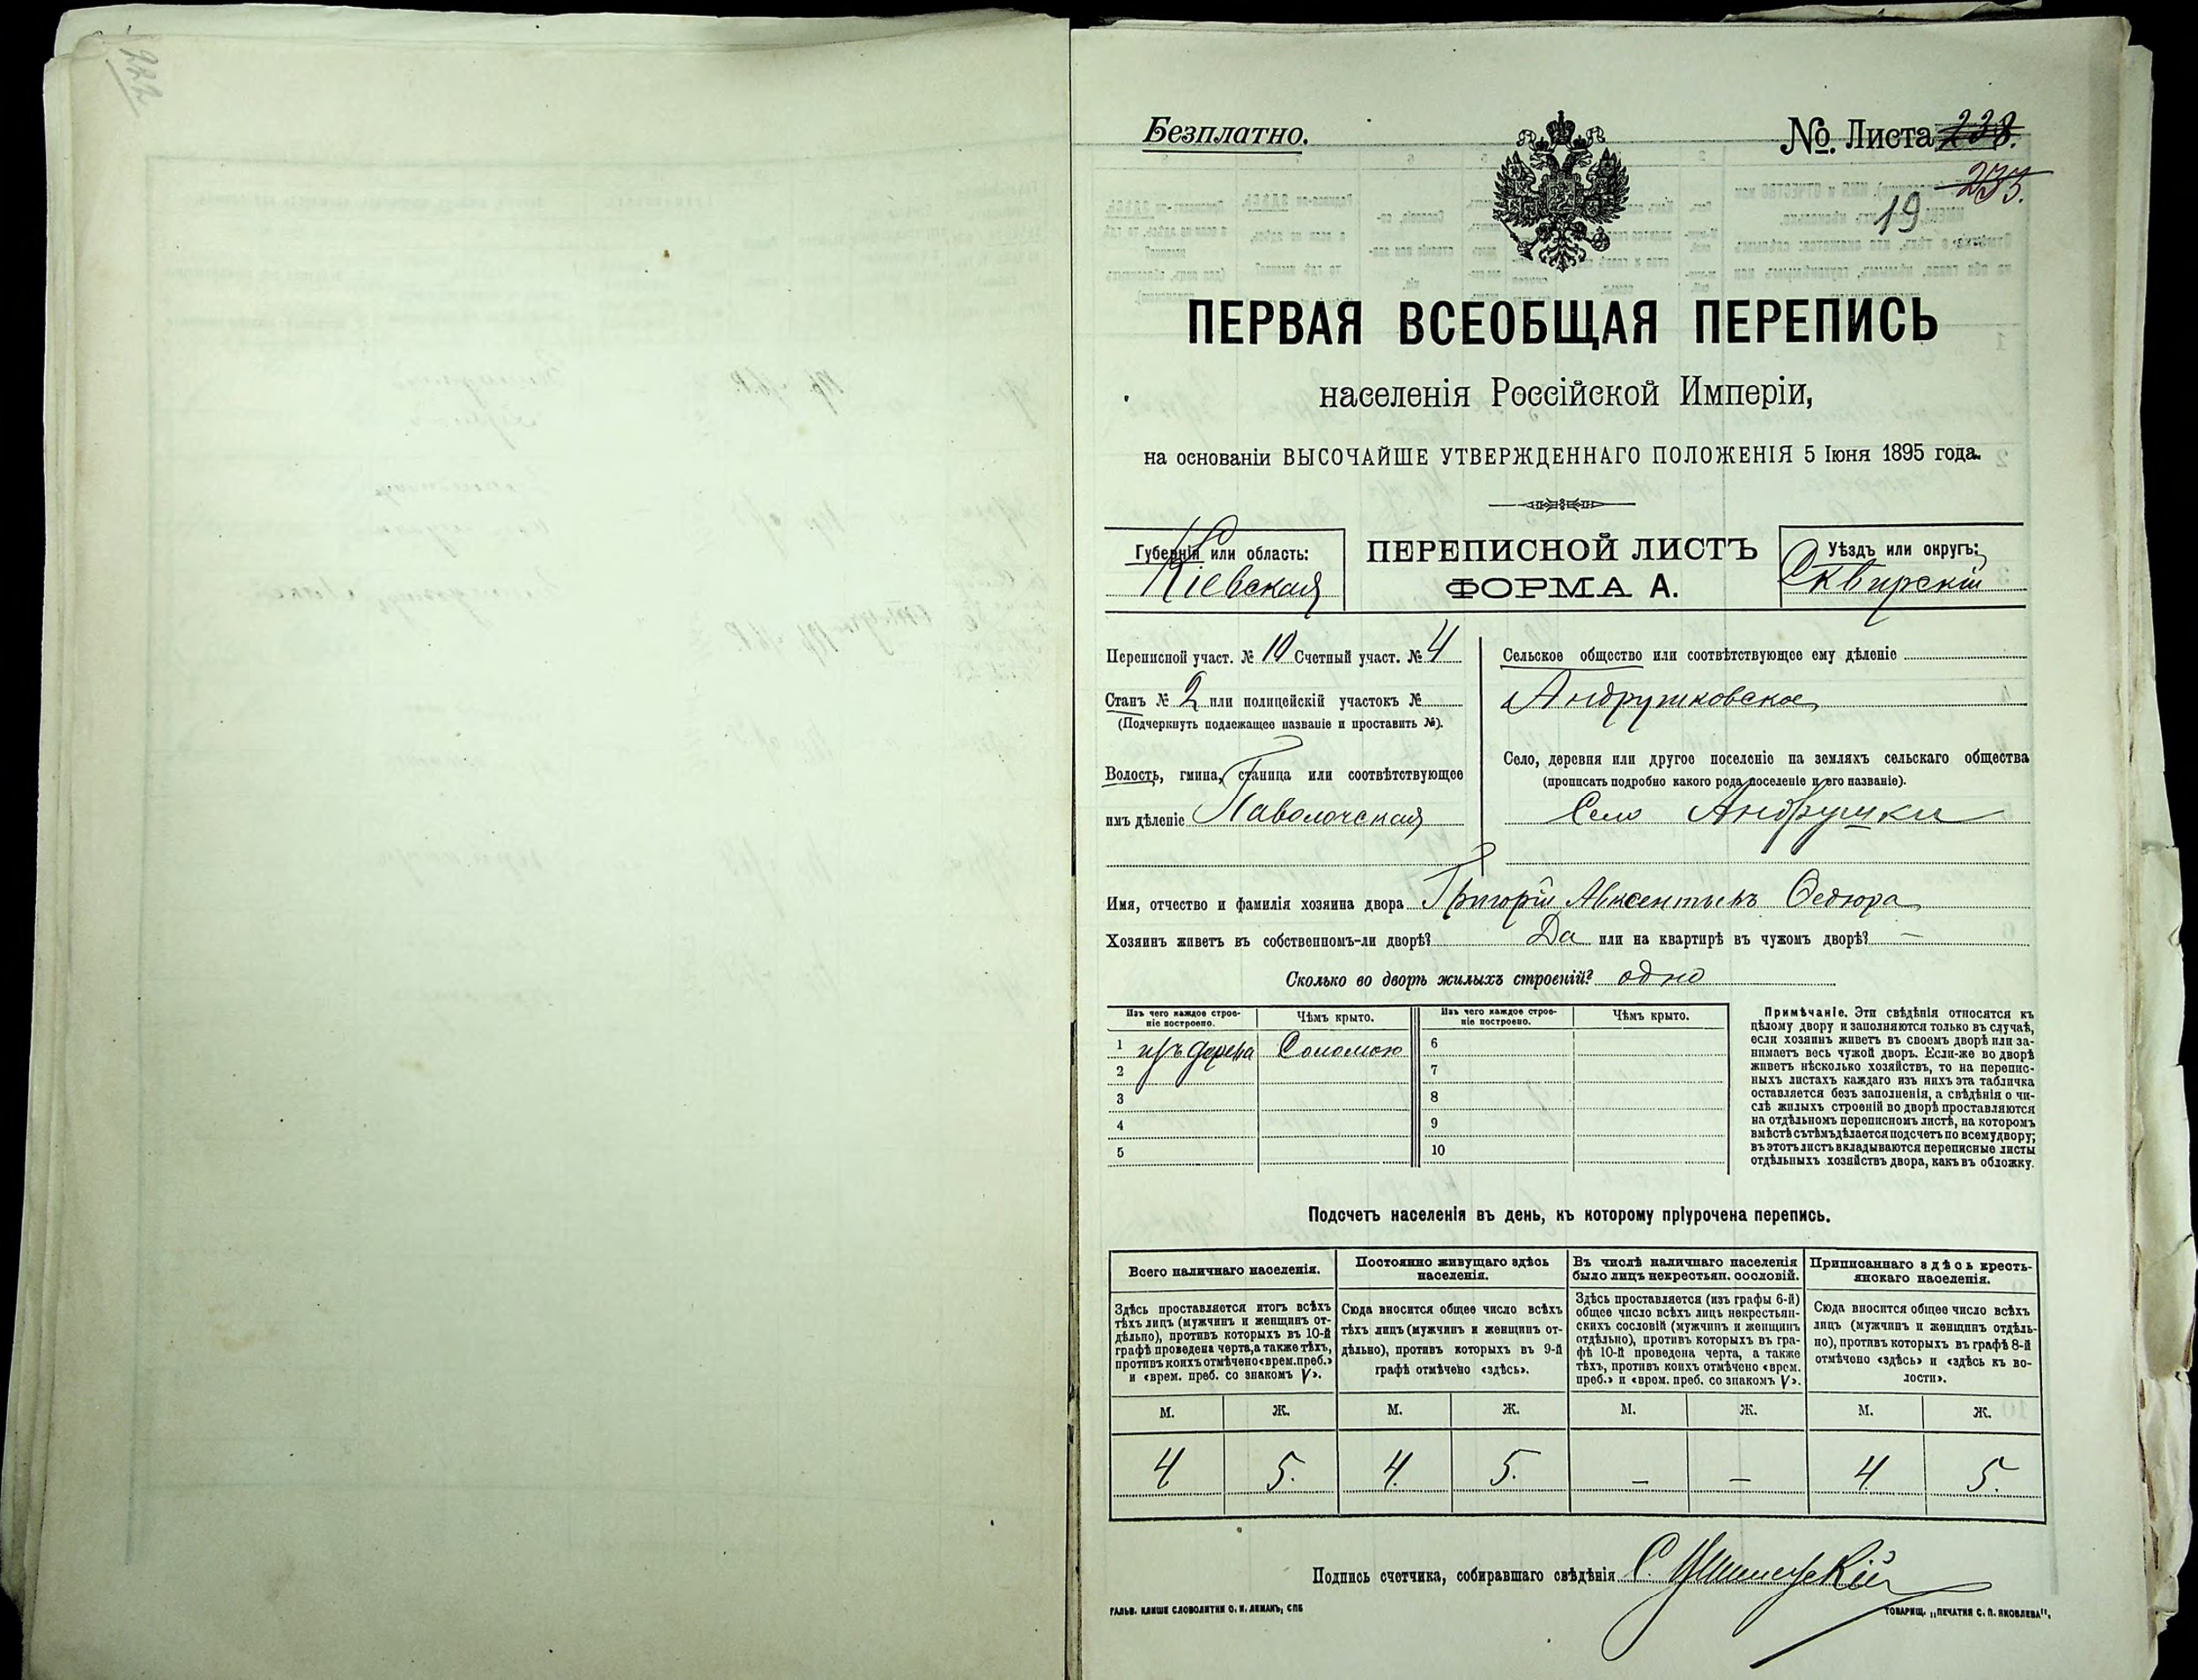 222
Безплатно.
№. Листа 238.
233.
19
ПЕРВАЯ ВСЕОБЩАЯ ПЕРЕПИСЬ
населенія Россійской Имперіи,
на основаніи ВЫСОЧАЙШЕ УТВЕРЖДЕННАГО ПОЛОЖЕНІЯ 5 Іюня 1895 года.
Губернія или область:
Кіевская
ПЕРЕПИСНОЙ ЛИСТЪ
ФОРМА А.
Уѣздъ или округъ:
Сквирскій
Переписной участ. № 10 Счетный участ. № 4
Станъ № 2 или полицейскій участокъ №
(Подчеркнуть подлежащее названіе и проставить №).
Волость, гмина, станица или соотвѣтствующее
имъ дѣленіе Паволочская
Сельское общество или соотвѣтствующее ему дѣленіе
Андрушковское
Село, деревня или другое поселеніе на земляхъ сельскаго общества
(прописать подробно какого рода поселеніе и его названіе).
Село Андрушки
Имя, отчество и фамилія хозяина двора Григорій Авксентьевъ Федюра
Хозяинъ живетъ въ собственномъ-ли дворѣ? Да или на квартирѣ въ чужомъ дворѣ? —
Сколько во дворѣ жилыхъ строеній? одно
Изъ чего каждое строе-
ніе построено.
Чѣмъ крыто.
Изъ чего каждое строе-
ніе построено.
Чѣмъ крыто.
1 изъ дерева Соломою 6
2 7
3 8
4 9
5 10
Примѣчаніе. Эти свѣдѣнія относятся къ
цѣлому двору и заполняются только въ случаѣ,
если хозяинъ живетъ въ своемъ дворѣ или за-
нимаетъ весь чужой дворъ. Если-же во дворѣ
живетъ нѣсколько хозяйствъ, то на перепис-
ныхъ листахъ каждаго изъ нихъ эта табличка
оставляется безъ заполненія, а свѣдѣнія о чи-
слѣ жилыхъ строеній во дворѣ проставляются
на отдѣльномъ переписномъ листѣ, на которомъ
вмѣстѣ съ тѣмъ дѣлается подсчетъ по всему двору;
въ этотъ листъ вкладываются переписные листы
отдѣльныхъ хозяйствъ двора, какъ въ обложку.
Подсчетъ населенія въ день, къ которому пріурочена перепись.
Всего наличнаго населенія.
Здѣсь проставляется итогъ всѣхъ
тѣхъ лицъ (мужчинъ и женщинъ от-
дѣльно), противъ которыхъ въ 10-й
графѣ проведена черта, а также тѣхъ,
противъ коихъ отмѣчено «врем. преб.»
и «врем. преб. со знакомъ V».
Постоянно живущаго здѣсь
населенія.
Сюда вносится общее число всѣхъ
тѣхъ лицъ (мужчинъ и женщинъ от-
дѣльно), противъ которыхъ въ 9-й
графѣ отмѣчено «здѣсь».
Въ числѣ наличнаго населенія
было лицъ некрестьян. сословій.
Здѣсь проставляется (изъ графы 6-й)
общее число всѣхъ лицъ некрестьян-
скихъ сословій (мужчинъ и женщинъ
отдѣльно), противъ которыхъ въ гра-
фѣ 10-й проведена черта, а также
тѣхъ, противъ коихъ отмѣчено «врем.
преб.» и «врем. преб. со знакомъ V».
Приписаннаго здѣсь кресть-
янскаго населенія.
Сюда вносится общее число всѣхъ
лицъ (мужчинъ и женщинъ отдѣль-
но), противъ которыхъ въ графѣ 8-й
отмѣчено «здѣсь» и «здѣсь къ во-
лости».
М. Ж. М. Ж. М. Ж. М. Ж.
4 5. 4. 5. — — 4. 5.
Подпись счетчика, собиравшаго свѣдѣнія С.
ГАЛЬВ. КЛИШЕ СЛОВОЛИТНИ О. И. ЛЕМАНЪ, СПБ
ТОВАРИЩ. „ПЕЧАТНЯ С. П. ЯКОВЛЕВА“.